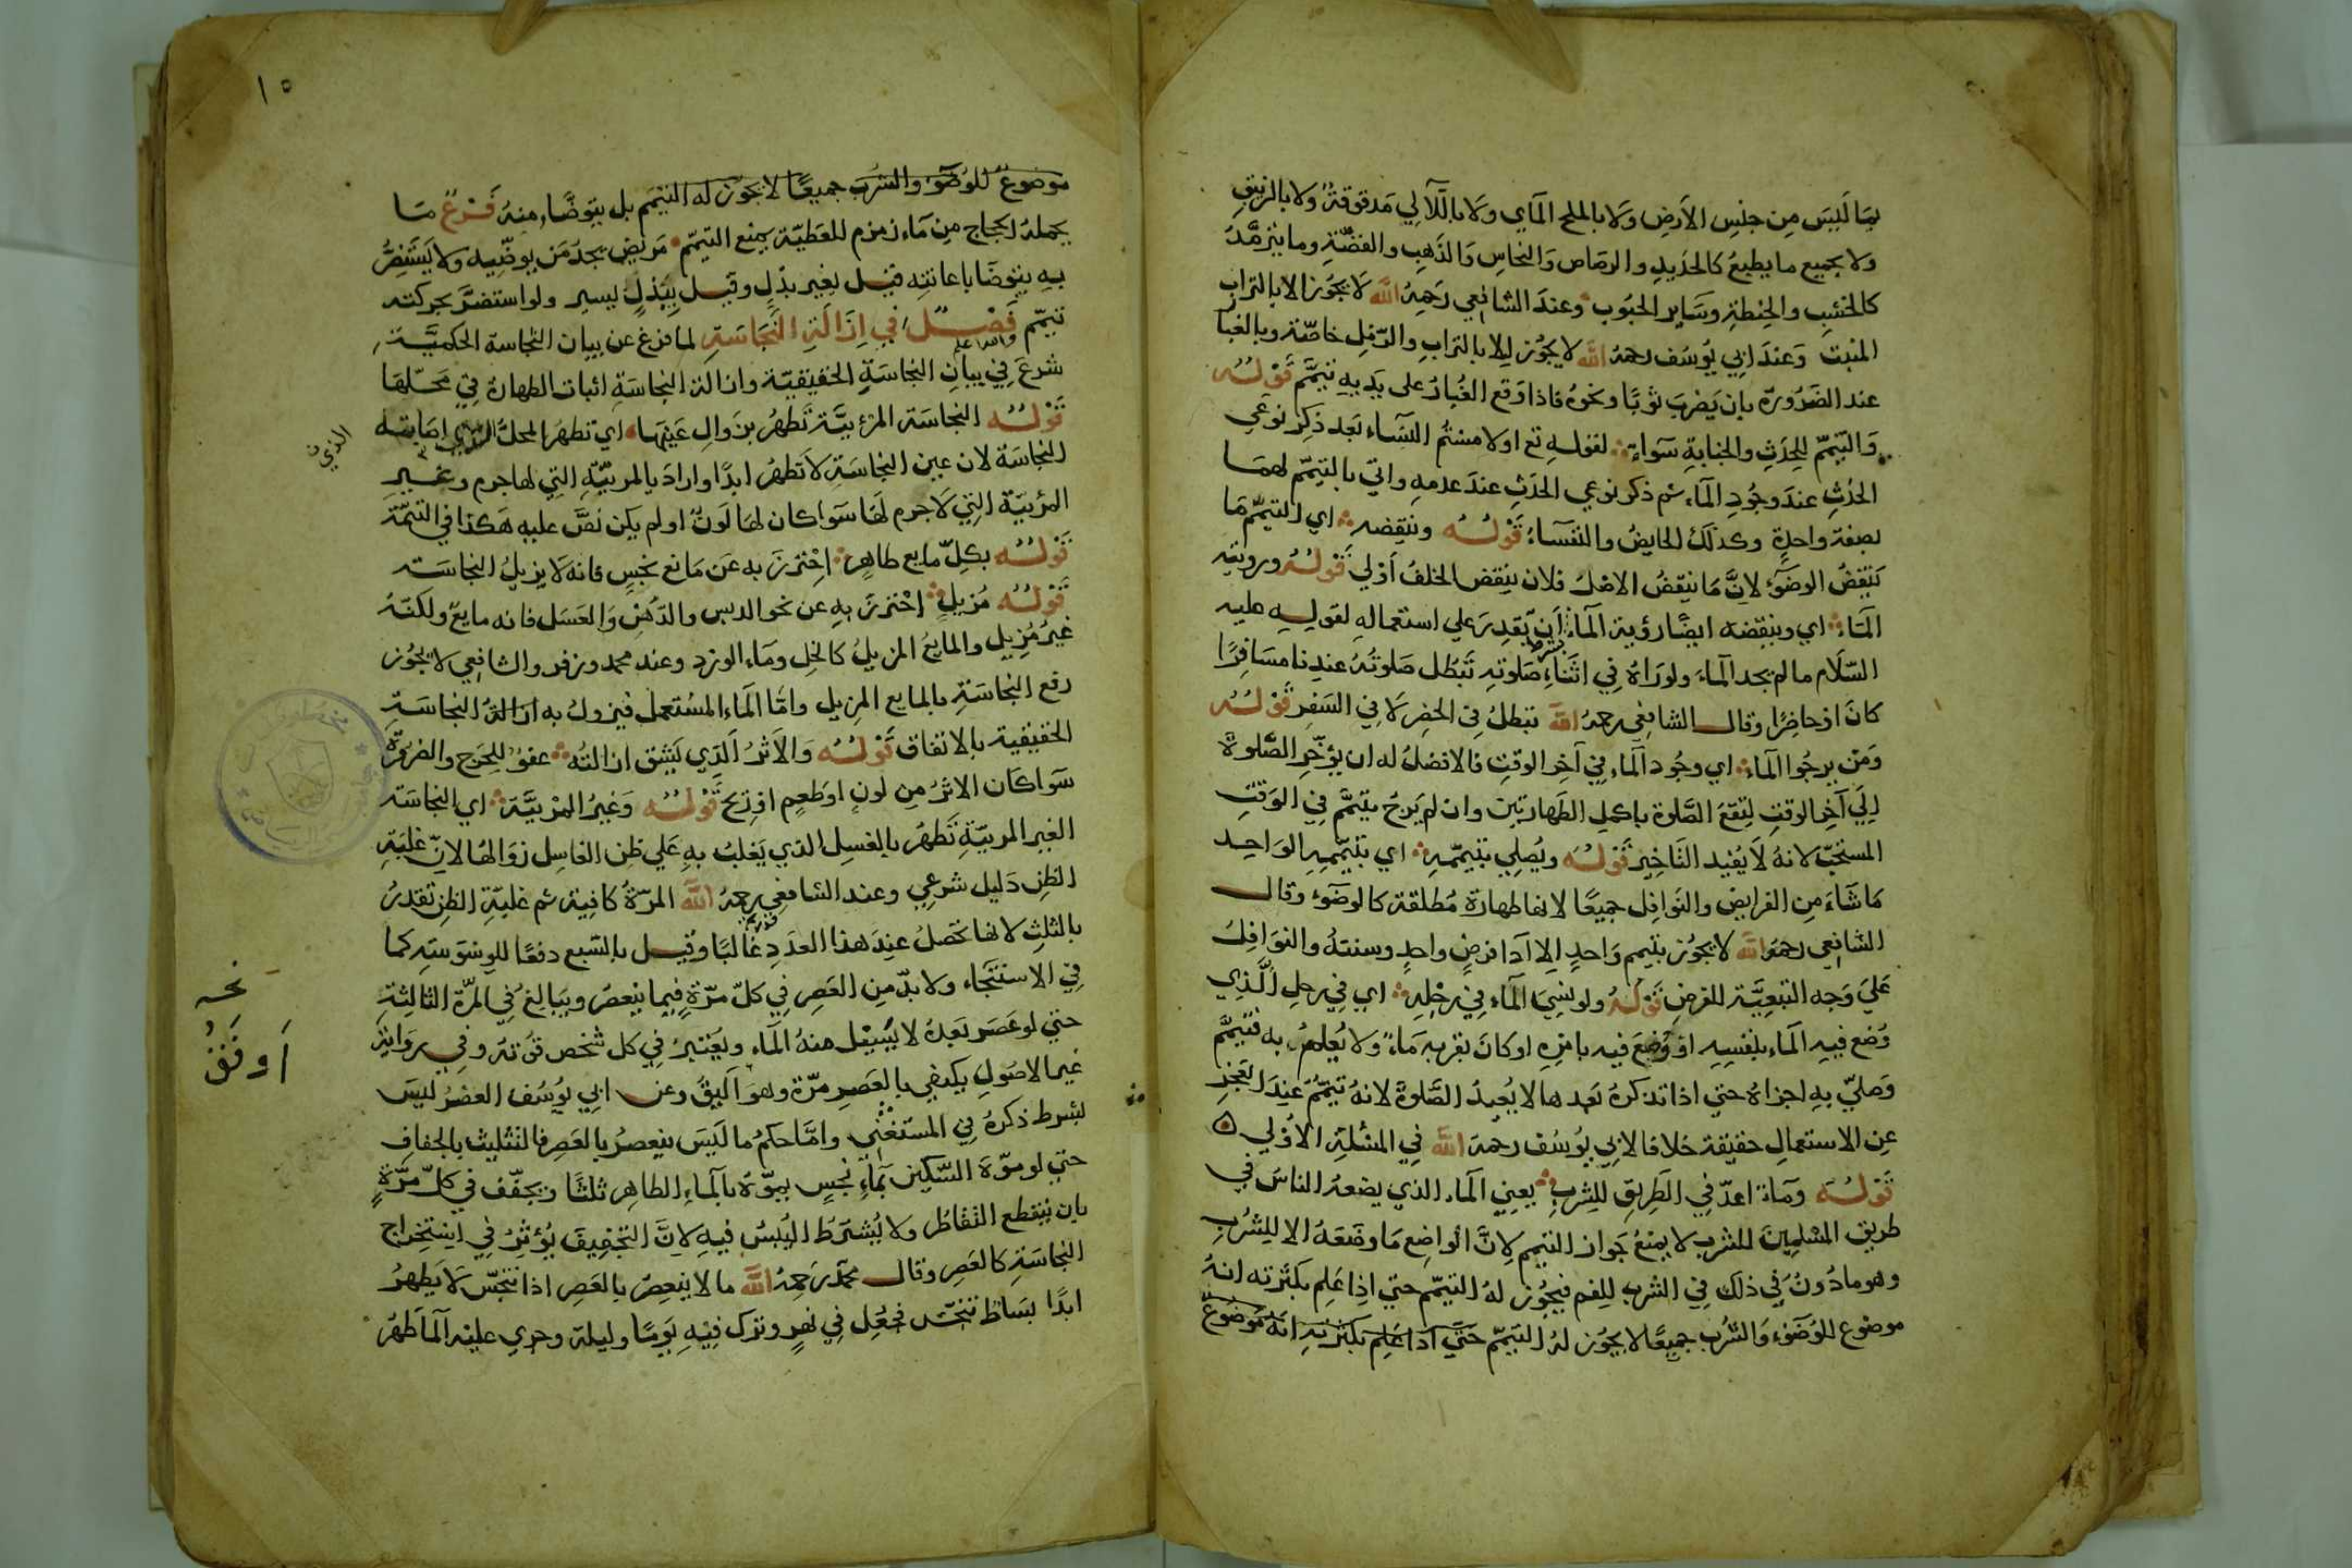 بمَا لَيسَ مِن جنسِ الأرضِ وَلا بالملح المآي ولا باللآلي مَدقوقةً ولا بالزيبقِ
ولا بجميع ما يطبعُ كالحَديدِ والرصَاص وَالنحاسِ وَالذَهِب والفضّةِ وما يترمّدُ
كالخشبِ والحِنطةِ وسَاير الحبُوب وعندَ الشافِعي رَحمهُ الله لا يجُوز الا بالترابِ
المنبت وَعندَ ابي يوُسُف رحمهُ الله لا يجُوز الا بالترابِ والرّملِ خاصّة وبالغبار
عند الضَرُورة بان يَضربَ ثوبًا ونحوهُ فاذا وَقع الغُبارُ على يَديهِ تيمَّم قَوْلُهُ
وَالتيمّم للِحدَثِ والجنابةِ سَواء لقولهِ تع اولامستُم النسَآء بَعد ذِكر نوعي
الحدَثِ عندَ وجُودِ المآء ثم ذكر نوعي الحدَثِ عندَ عدمهِ واتي بالتيمّم لهمَا
بصفة واحدةٍ وكذلكَ الحايضُ والنفسَآءُ قَوْلُهُ وينقِضه اي التيمّم مَا
يَنقضُ الوضوَء لاِنَّ مَا ينقضُ الاصْلَ فلان ينقض الخلفُ اَوْلي قَوْلُهُ ورويتهِ
المآء اي وينقِضه ايضًا رؤية المآء بشرط اَن يَقدِرَ علي استعمالهِ لقولهِ عليه
السّلام مالم يجد المآءَ ولورَاهُ فِي اثنَاء صَلوتهِ تَبطل صَلوتُهُ عندنا مسَافِرًا
كانَ او حاضِرًا وقال الشافِعي رحمهُ الله تبطلُ فِي الحضَرِ لا فِي السَفرِ قَوْلُهُ
وَمَن يرجُوا المآء اي وجُود المآء فِي آخِر الوقتِ فالافضلُ له ان يؤخّر الصَّلوة
اِلَي آخِر الوقتِ لِتقعَ الصَّلوة باكمل الطَهارتين وان لم يَرجُ يتيمَّم فِي الوَقتِ
المستحَبّ لانهُ لا يُفيد التَاخِير قَوْلُهُ ويُصلِي بتيممّهِ اي بتيَمّمهِ الوَاحِد
مَا شآءَ مِن الفرايضِ والنَوافِل جميعًا لانها طهارة مُطلقة كالوضوء وقال
الشافِعي رحمهُ الله لا يجُوز بتيمم وَاحدٍ الا آدا فرضٍ واحدٍ وسنتهُ والنوَافِلُ
عَليَ وَجه التبعيَّة للفرضِ قَوْلُهُ ولو نسِيَ المآء فِي رحْلِهِ اي فِي رحلِ الَّذِي
وُضع فيهِ المآء بنفسِهِ او وُضِعَ فيه بامرِهِ او كانَ بقربهِ مَاءٌ ولا يُعلمُ به فتيمَّم
وَصليّ بهِ اجزاهُ حتي اذا تذكرهُ بَعدها لا يُعيدُ الصَّلوةَ لانهُ تيمّمَ عندَ العَجزِ
عن الاستعمالِ حقيقة خلافا لابي يوُسُف رحمهُ الله فِي المسْئلةِ الاوُلي
قَوْلُهُ ومَاء اعدّ فِي الطَرِيقِ للِشربِ يعني المآء الذي يضعهُ الناسُ فِي
طريق المسْلمينَ للشربِ لا يمنعُ جَواز التيمم لِانّ الوَاضِع مَا وضَعَهُ الا للِشُربِ
وهو مادُونٌ فِي ذلك فِي الشربِ للِغم فيجُوز لهُ التيمّم حتي اِذا عَلِم بكثرته انهُ
موضوع للوُضَوء وَالشُرب جميعًا لا يجُوز لهُ التيَمّم حَتي اذا عَلِم بكثرته انهُ موضوعٌ
١٥
موضوعٌ للوُضوء والشرب جميعًا لا يجُوز له التيمَم بل يتوضَّاء منهُ فَرْعٌ مَا
يحملهُ الحجاج من مَاء زمزم للعَطِيّة يمنع التيمّم مَريض يجدُ مَن يوضّيه ولا يَستَضِرُّ
بهِ يتوضّا باعانتِه قيل بغير بَدَلٍ وقيل ببَدَلٍ يسير ولو استضرَّ بحركته
تيمّم فَصْلٌ فِي اِزَالَةِ النَّجَاسَةِ لما فرغ عن بيان النجاسة الحكميَّة
شرعَ فِي بيَانِ النجاسَةِ الحقيقيّة وازالة النجاسَةِ اثبات الطهارة فِي مَحَلّهَا
قَوْلُهُ النجاسَة المرْئيَّة تَطهُر بزَوالِ عَينِهَا اي تطهرُ المحلُّ الذي اصَابته
الذي
النجاسَة لان عين النجاسَة لا تَطهُر ابدًا وارادَ بالمرئيّةِ التِي لها جرم وغير
المرْئيّة التِي لاجرم لهَا سَوا كان لهَا لَونٌ او لم يكن نصَّ عليهِ هَكذا في التتمّة
قَوْلُهُ بكِلّ مايع طاهِرٍ اِحْترزَ به عَن مَايع نجسٍ فانه لا يزيلُ النجاسَة
قَوْلُهُ مُزيلٍ اِحْترزَ بهِ عن نحو الدبس والدّهْنِ وَالعَسَل فانه مايعٌ ولكنّهُ
غيرُ مُزِيل والمايعُ المزيلُ كالخلِ ومَاء الورْدِ وعند محمد وزفر والشافِعي لا يجُوز
رفع النجاسَةِ بالمايع المزيل وامّا المآء المسْتعمل فيزولُ به ازالةُ النجاسَةِ
الحقيقية بالاتفاق قَوْلُهُ وَالاَثرُ اَلذِي يَشق ازالتُه عفوٌ للِحَرَج والضرُورَة
سَوا كان الاثرُ مِن لونٍ او طَعمٍ او رِيح قَوْلُهُ وَغيرُ المرْئيَّة اي النجاسَة
الغير المرئيّةِ تَطهُر بالغسِل الذي يَغلبُ بهِ عَلي ظن الغاسِل زوَالهَا لانّ غلبَةِ
الظنِ دَليل شرعِي وعند الشافِعي رحمهُ الله المرّةُ كافِية ثم غلبَةِ الظِن تُقدرُ
بالثلثِ لانها تحَصلُ عندَ هذا العدَدِ غَالبًا وقيل بالسّبع دفعًا للِوسْوَسَةِ كما
فِي الاستنجَآء ولا بدّ مِن العَصِر فِي كلّ مرّةٍ فيما ينعصرُ ويَبالغُ فِي المرّة الثالِثةِ
حتي لو عَصَر بَعدهُ لا يَسيْل منهُ المآء ويَعْتبرُ فِي كل شخص قوّته وفي رِوَايةِ
غير الاصُولِ يكتفي بالعَصرِ مرّة وهوَ اَليقُ وعن ابي يوُسُف العصْرُ ليسَ
نخه
اَوفَقُ
بشرط ذكرهُ فِي المستَغني وامَّا حكمُ ما لَيسَ ينعصرُ بالعَصِر فالتثليث بالجفافِ
حتي لو موّهَ السّكين بمَآءٍ نجسٍ يموّهُ بالمآءِ الطاهِر ثلثًا ويجفّف في كلّ مرّةٍ
بان ينقطع التقَاطُر ولا يُشتَرَطُ اليُبسُ فيهِ لاِنَّ التجَفِيفَ يُؤثّرُ فِي اِستِخراجِ
النجاسَةِ كالعَصِر وقال محمّدٌ رَحمهُ الله ما لا ينعصرُ بالعَصِر اذا تنجّسَ لا يَطهرُ
ابدًا بسَاط تنجّسَ فجُعِل فِي نهرٍ وتُرِك فيْهِ يَومًا وليلة وجري عليْهِ المآءُ طهُر